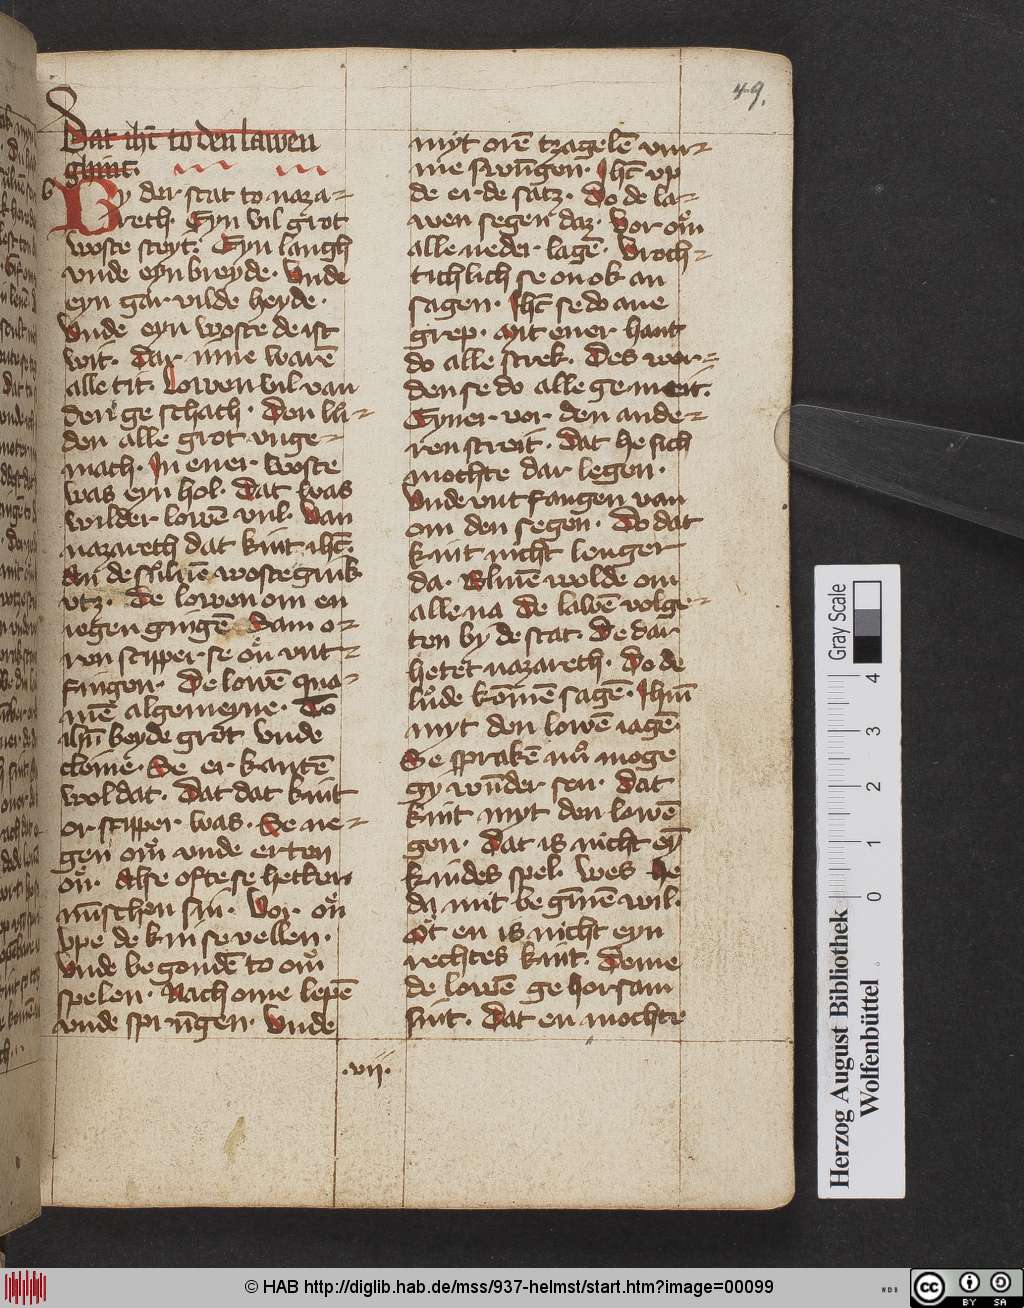 49.
Dat ihc̄ to den lawen
ghint.
By der stat to naza-
reth. Eyn vil grot
woste steyt. Eyn langh
vnde eyn breyde. Vnde
eyn gar vilde heyde.
Vnde eyn woste de ist
wit. Dar inne warē
alle tit. Lowen vil van
den ge schach. Den lu-
den alle grot vnge-
mach. In ener woste
was eyn hol. Dat was
wilder lowē vul. Van
nazareth dat kint ihc̄.
An de sůluē woste gink
vtz. De lowen om en
iegen gingē. Dam o-
ren scipper se on vnt-
fingen. De lowē qua-
mē algemeyne. To
ihū beyde grot vnde
cleine. Se er kantē
wol dat. Dat dat kint
or scipper was. Se ne-
gen om vnde erten
on. Alse ofte se hetken
mīschen sin. Vor on
vpe de knise vellen.
Vnde be gondē to om
spelen. Nach ome lepē
vnde sprūgen. Vnde
myt orē tzagelē vm-
me swūgen. Ihc̄ vp
de erde satz. Do de la-
wen segen daz. Vor om
alle neder lagē. Vroch-
tichlich se on ok an
sagen. Ihc̄ se do ane
grep. Mit ener hant
do alle strek. Des wor-
den se do alle gemeit.
Eyner vor den ande-
ren streit. Dat he sich
mochte dar legen.
Vnde vnt fangen van
om den segen. Do dat
kint nicht lenger
da. Bliuē wolde om
alle na de lawē volge-
ten by de stat. De dar
hetet nazareth. Do de
lude komē sagē. Ihm̄
myt den lowē iagē.
Se sprakē nu moge
gy wūder sen. Dat
kint myt den lowē
gen. Dat is nicht eȳ
kindes spel. Wes he
da mit be ginē wil.
Ot en is nicht eyn
rechtes kint. Deme
de lowē ge horsam
sint. Dat en mochte
.vii.
Gray Scale
0 1 2 3 4
Herzog August Bibliothek
Wolfenbüttel
© HAB http://diglib.hab.de/mss/937-helmst/start.htm?image=00099
WDB
cc BY SA